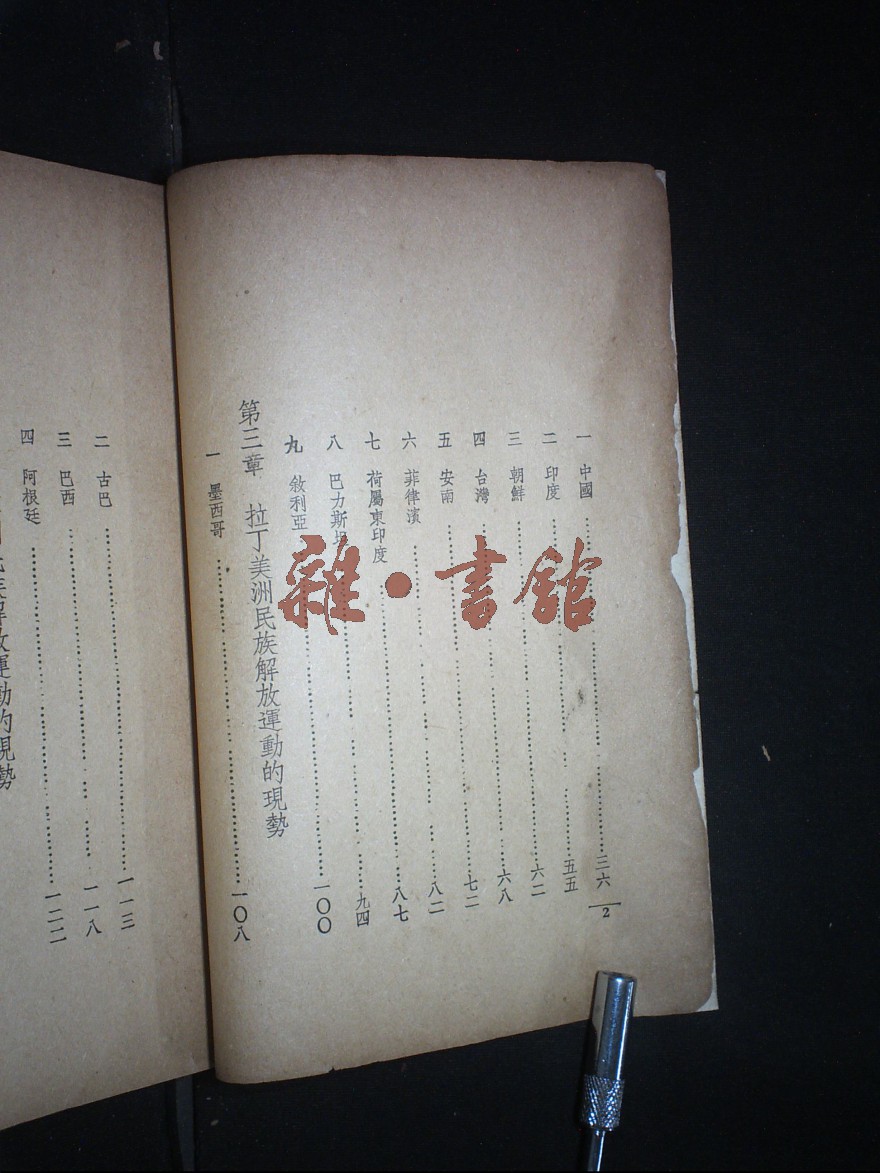 2
一 中國 三六
二 印度 五五
三 朝鮮 六二
四 台灣 六八
五 安南 七二
六 菲律濱 八二
七 荷屬東印度 八七
八 巴力斯坦 九四
九 敘利亞 一〇〇
第三章 拉丁美洲民族解放運動的現勢
一 墨西哥 一〇八
二 古巴 一一三
三 巴西 一一八
四 阿根廷 一二二
族解放運動的現勢
雜·書館